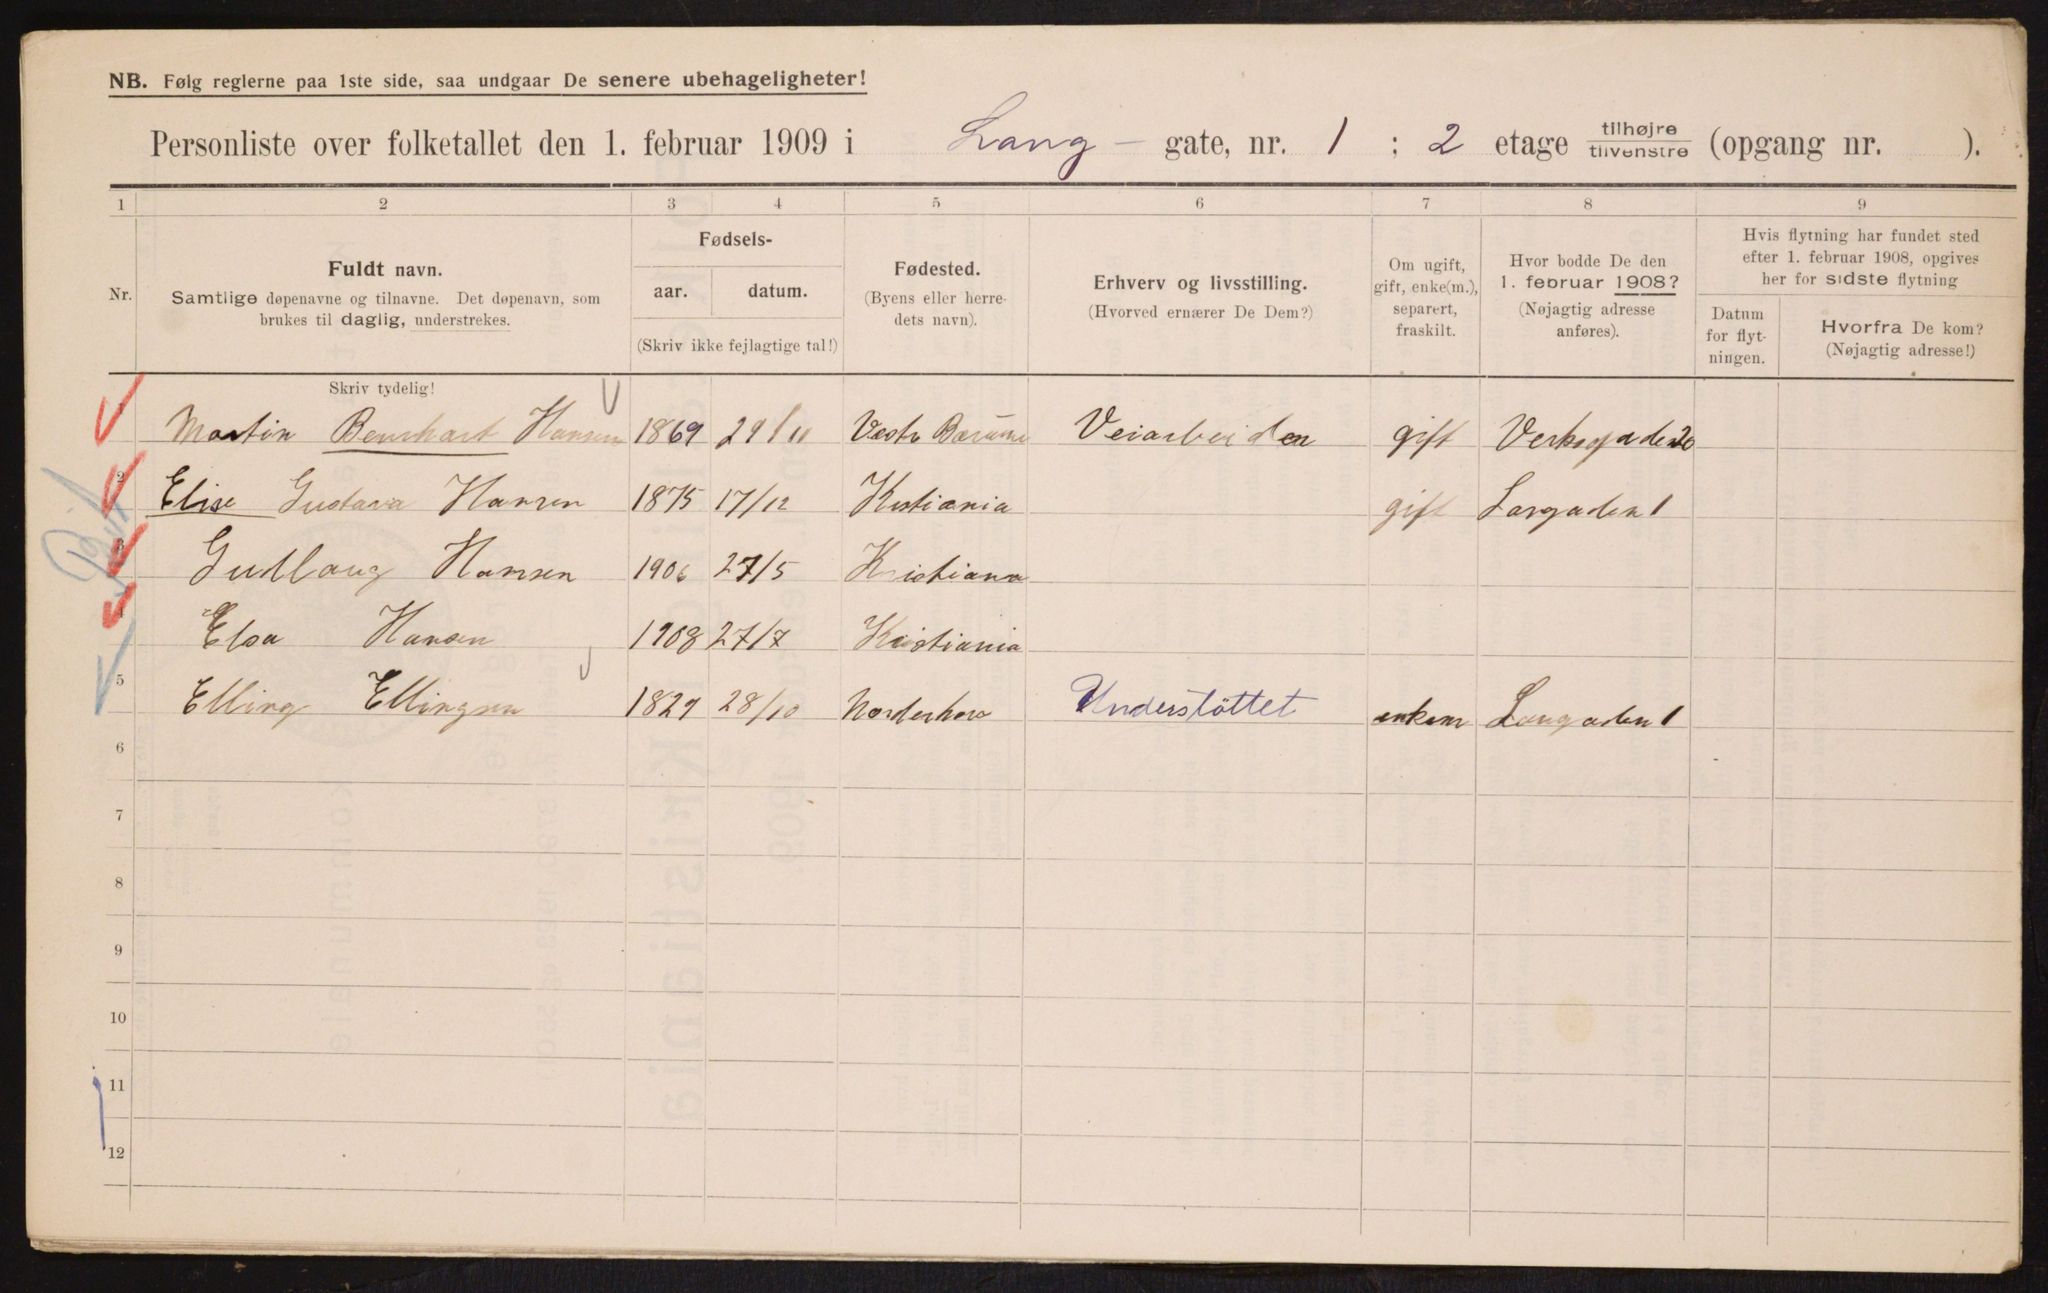 NB. Følg reglerne paa 1ste side, saa undgaar De senere ubehageligheter!
Personliste over folketallet den 1. februar 1909 i Lang- gate, nr. 1 ; 2 etage tilhøjre / tilvenstre (opgang nr. ).
1 2 3 4 5 6 7 8 9
Nr.
Fuldt navn.
Samtlige døpenavne og tilnavne. Det døpenavn, som
brukes til daglig, understrekes.
Fødsels-
aar. datum.
(Skriv ikke fejlagtige tal!)
Fødested.
(Byens eller herre-
dets navn).
Erhverv og livsstilling.
(Hvorved ernærer De Dem?)
Om ugift,
gift, enke(m.),
separert,
fraskilt.
Hvor bodde De den
1. februar 1908?
(Nøjagtig adresse
anføres).
Hvis flytning har fundet sted
efter 1. februar 1908, opgives
her for sidste flytning
Datum
for flyt-
ningen.
Hvorfra De kom?
(Nøjagtig adresse!)
Skriv tydelig!
1 Martin Bernhart Hansen 1869 29/11 Vestr Bærum Veiarbeider gift Verksgaden 20
2 Elise Gustava Hansen 1875 17/12 Kristiania gift Langaden 1
3 Gudlaug Hansen 1906 27/5 Kristiana
4 Elsa Hansen 1908 27/7 Kristiania
5 Elling Ellingsen 1829 28/10 Norderhov Understöttet enkem Langaden 1
6
7
8
9
10
11
12